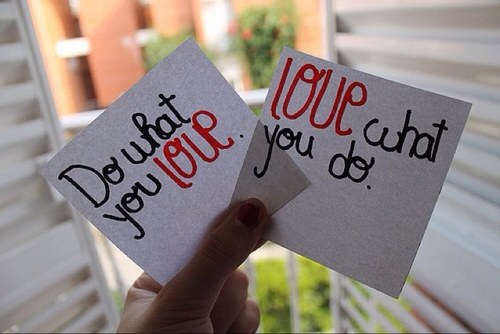 Do what
you love.
love what
you do.